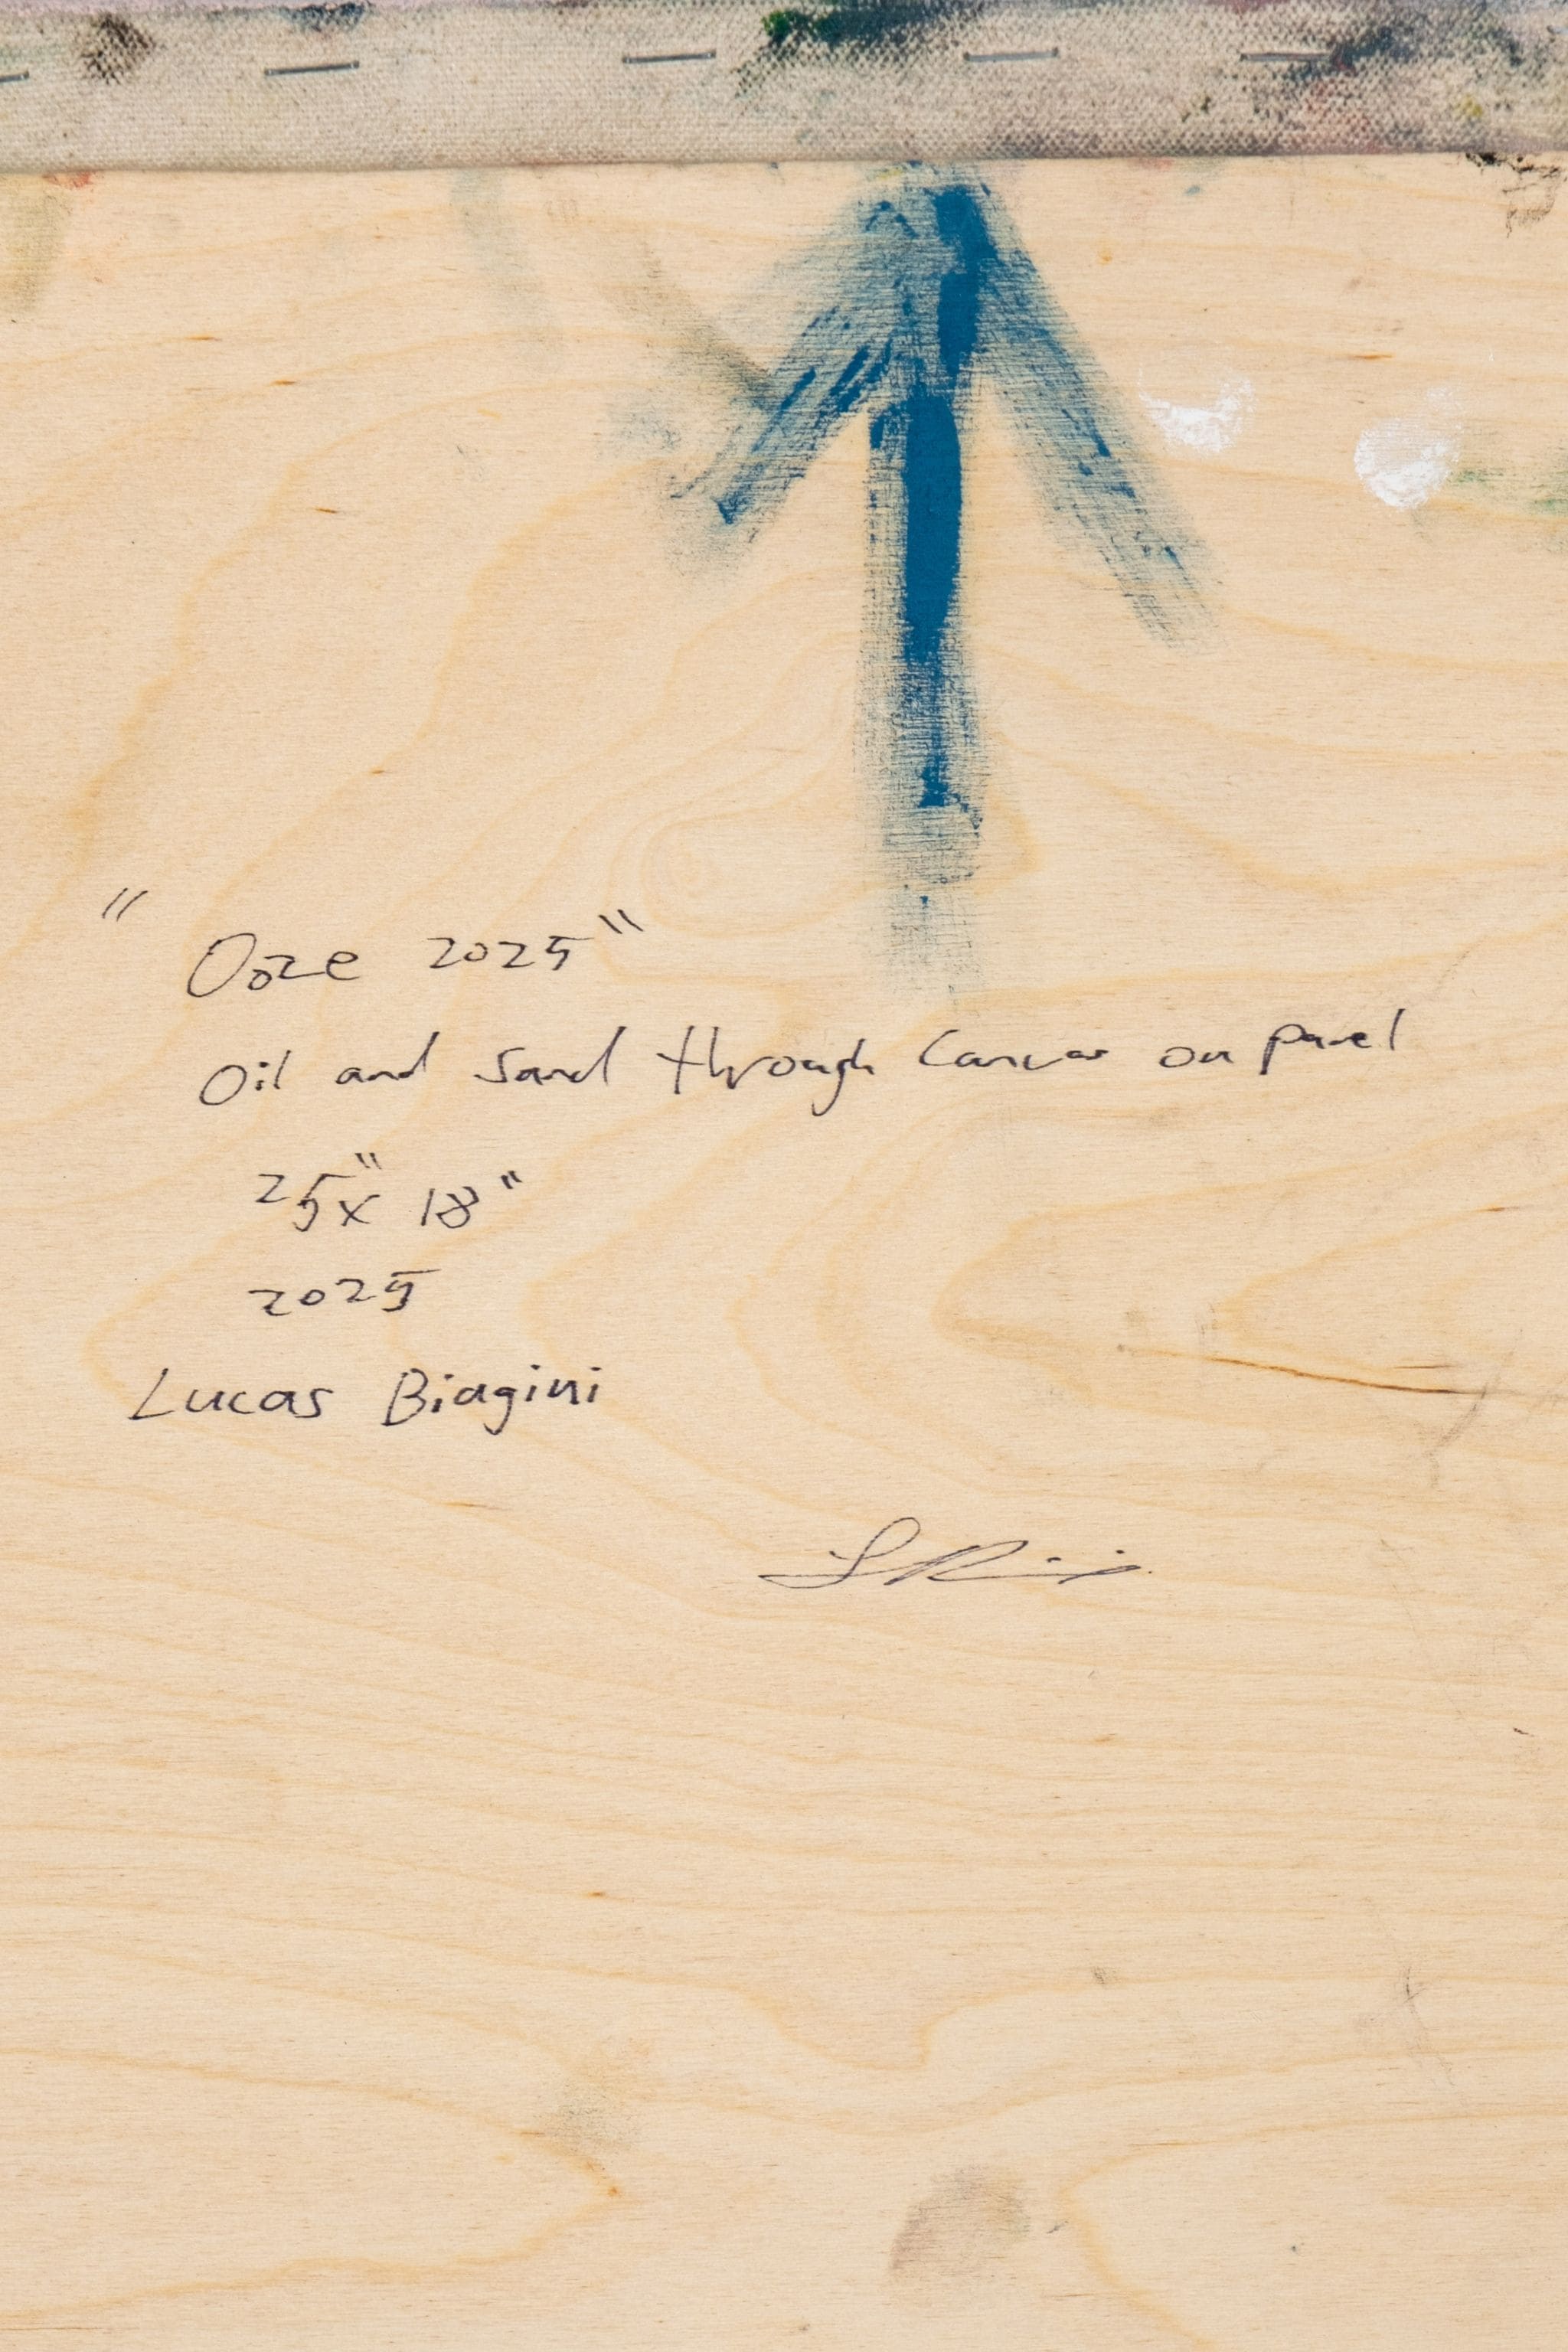 "Ooze 2025"
Oil and Sand through Canvas on panel
25" x 18"
2025
Lucas Biagini